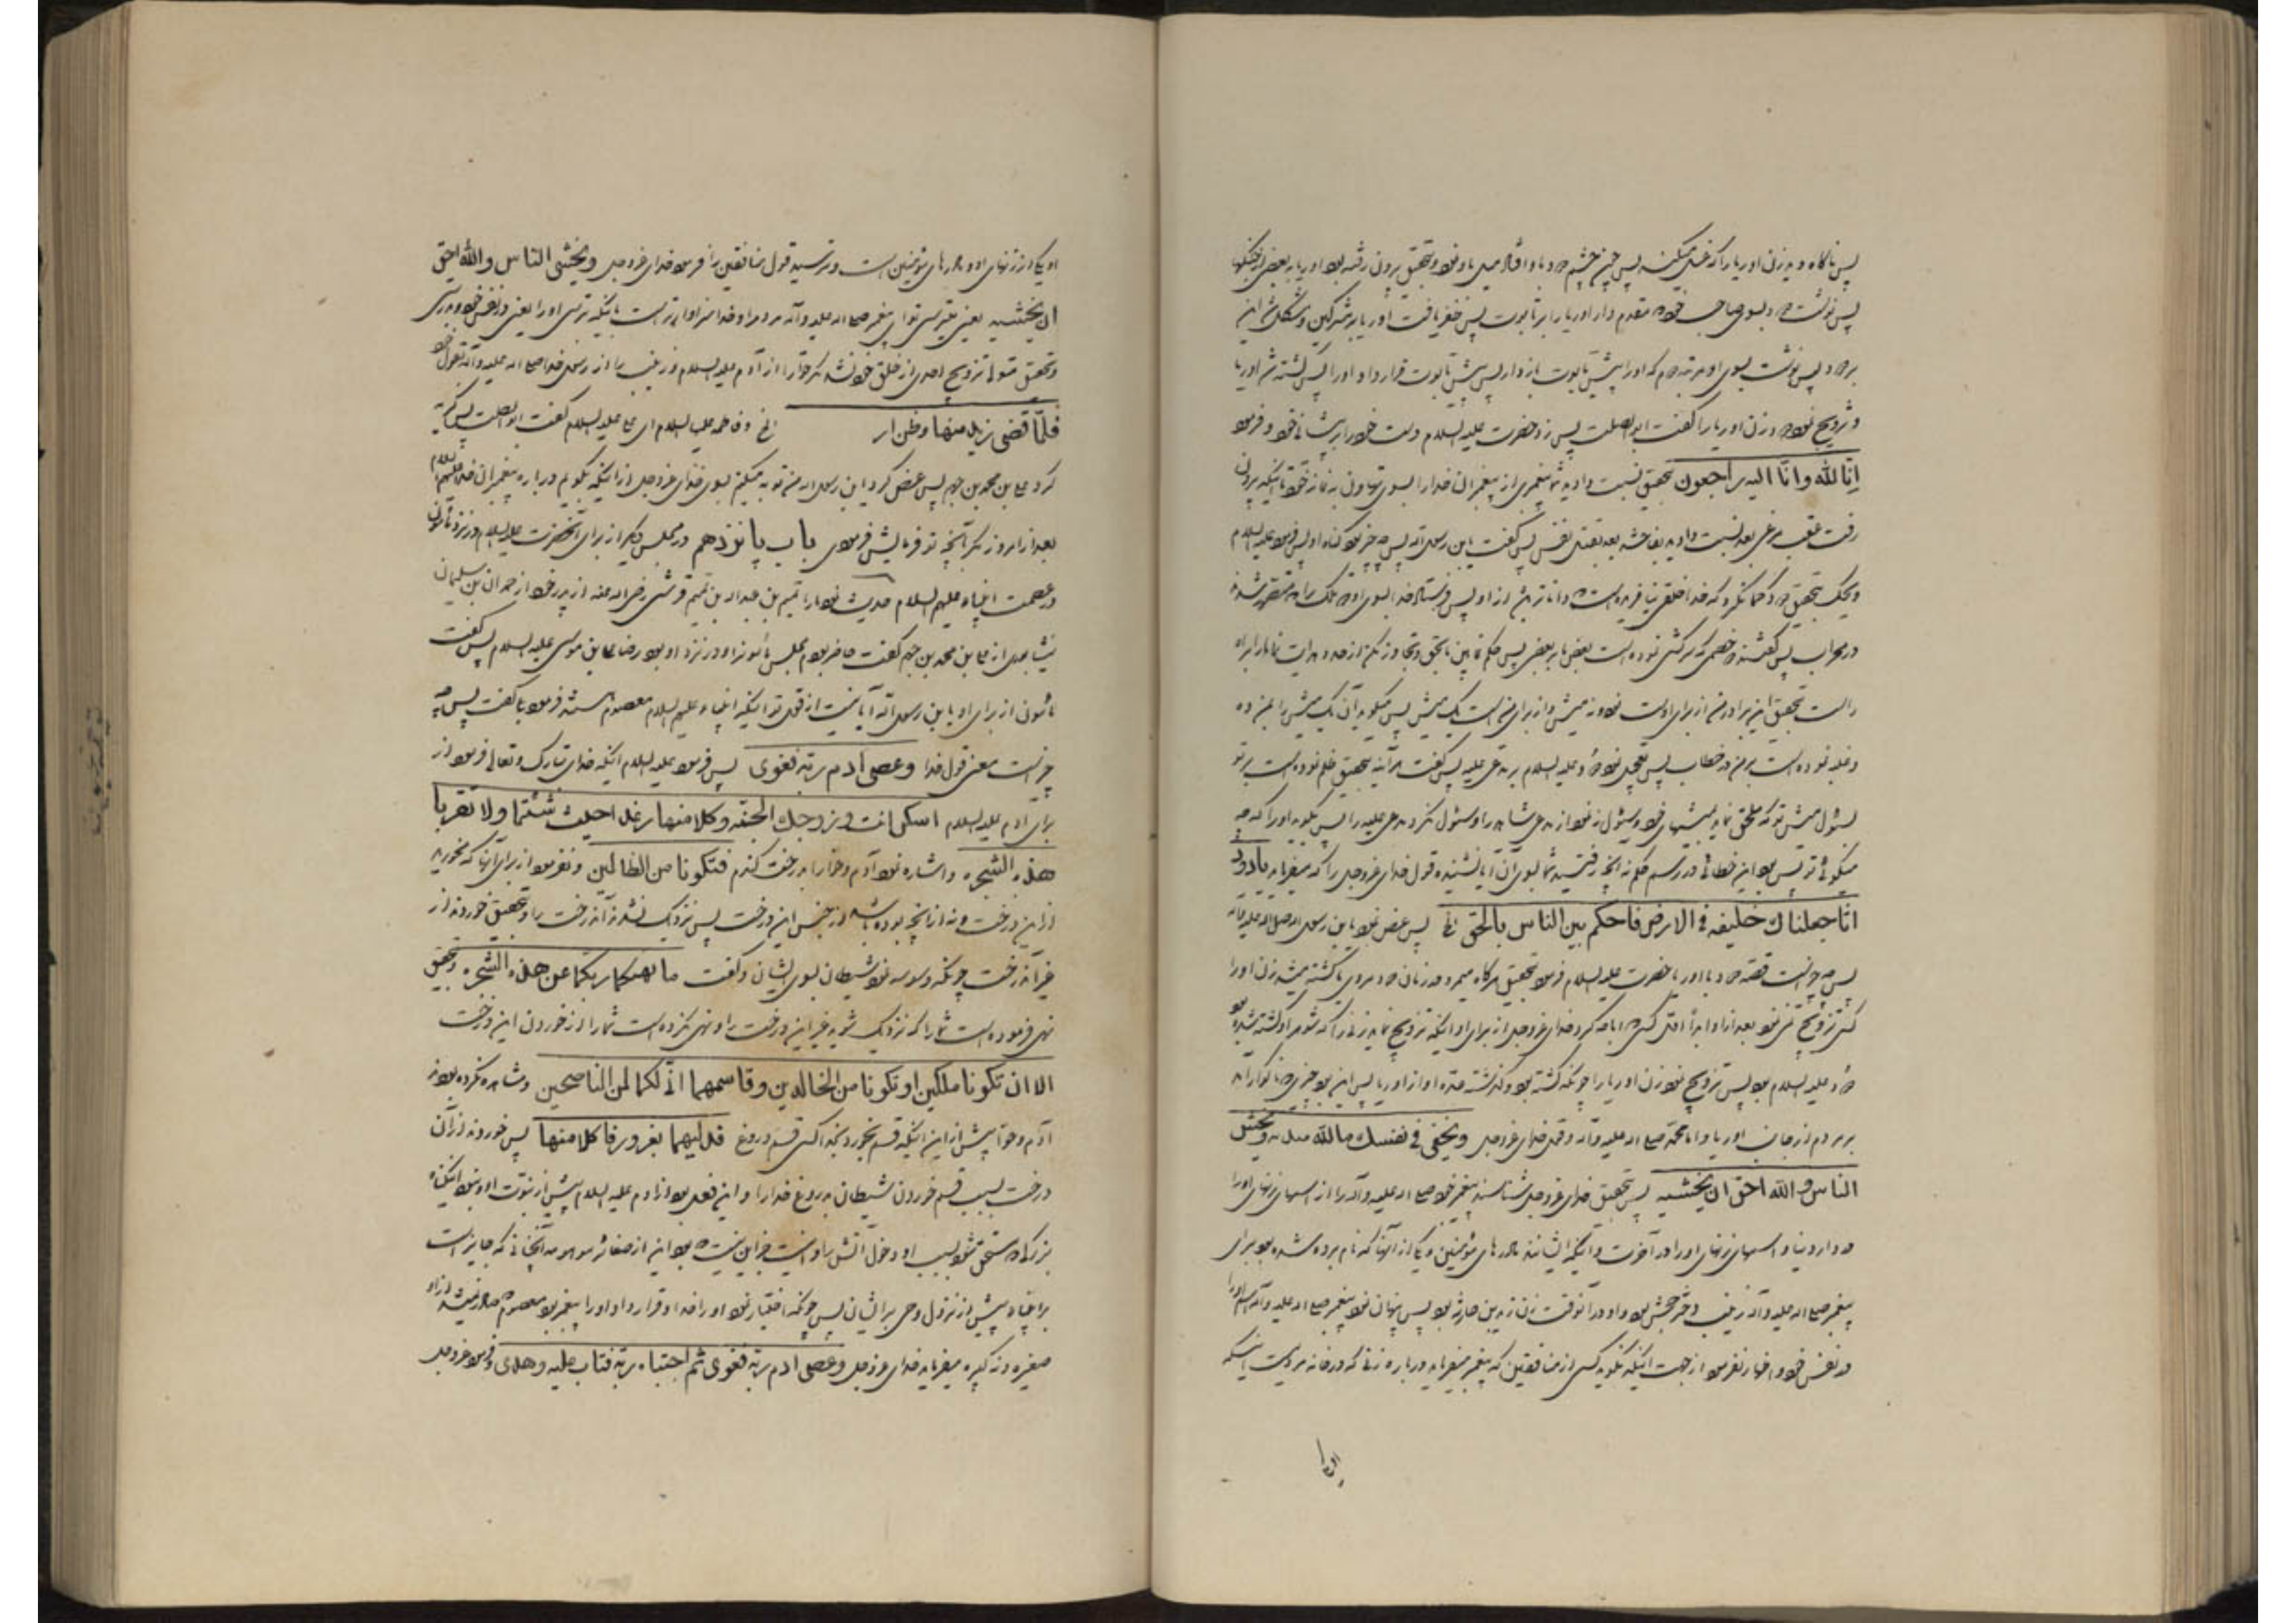 پس ناگاه دید زن اوریا را که غسل میکند پس چون چشم داود باو افتاد میل باو نمود و بتحقیق بیرون رفته بود اوریا به بعضی از جنگها
پس نوشت داود بسوی صاحب خود که مقدم دار اوریا را بر تابوت پس ظفر یافت اوریا بر مشرکین و مشکل شد این
بر داود پس نوشت بسوی او مرتبه دوم که او را پیش تابوت بازدار پس پیش تابوت قرار داد او را پس کشته شد اوریا
و تزویج نمود داود زن اوریا را گفت ابوالصلت پس زد حضرت علیه السلام دست خود را بر پیشانی خود و فرمود
انّا لله وانّا الیه راجعون بتحقیق نسبت دادید شما پیغمبری از پیغمبران خدا را بسوی تهاونی به نماز خود تا اینکه بیرون
رفت عقب مرغی بعد نسبت دادید بفاحشه بعد بقتل نفس پس گفت یابن رسول الله پس چه چیز بود گناه او پس فرمود علیه السلام
ویحک بتحقیق داود گمان کرد که خدا خلقی نیافریده است داناتر از او پس فرستاد خدا بسوی او دو ملک را
در محراب پس گفتند دو خصمیم که سرکشی نموده است بعض ما بر بعضی پس حکم نما بین ما بحق و تجاوز مکن از حد و هدایت نما ما را براه
راست بتحقیق این برادر من از برای اوست نود و نه میش و از برای من است یک میش پس میگوید آن یک میش را بمن ده
و غلبه نموده است بر من در خطاب پس تعجیل نمود داود علیه السلام بر مدعی علیه پس گفت هرآینه بتحقیق ظلم نموده است بر تو
بسئوال میش تو که ملحق نماید بمیشهای خود و سئوال ننمود از مدعی شاهد را و سئوال نکرد مدعی علیه را پس بگوید او را که چه
میگوئی تو پس بود این خطای در رسم حکم نه آنچه رفتید شما بسوی آن آیا نشنیده قول خدای عزوجل را که میفرماید یا داود
انّا جعلناک خلیفه فی الارض فاحکم بین الناس بالحق الخ پس عرض نمود یابن رسول الله صلی الله علیه وآله
پس چه چیز است قصه داود با اوریا حضرت علیه السلام فرمود بتحقیق هرگاه میمرد در زمان داود مردی یا کشته میشد زن او را
کسی تزویج نمی نمود بعد از او ابداً اول کسی که اباحه کرد خدای عزوجل از برای او اینکه تزویج نماید زنی را که شوهر او کشته شده بود
داود علیه السلام بود پس تزویج نمود زن اوریا را چونکه کشته بود و گذشته عده او از اوریا پس این بود چیزی که ناگوار آمد
بر مردم از جانب اوریا و اما محمد صلی الله علیه وآله و قول خدای عزوجل وتخفی فی نفسک ما الله مبدیه وتخشی
الناس والله احق ان تخشیه پس بتحقیق خدای عزوجل شناسانید پیغمبر خود صلی الله علیه وآله را از اسمهای زنهای او را
در دار دنیا و اسمهای زنهای او را در آخرت و اینکه ایشانند مادرهای مؤمنین و یکی از آنها که نام برده شده بود برای
پیغمبر صلی الله علیه وآله زینب دختر جحش بود و او در آنوقت زن زید بن حارثه بود پس پنهان نمود پیغمبر صلی الله علیه وآله اسم او را
در نفس خود و اظهار نفرمود از جهت اینکه نگوید کسی از منافقین که پیغمبر میفرماید درباره زنی که در خانه مردیست اینکه
او یکی از زنهای او و مادرهای مؤمنین است و ترسید قول منافقین را فرمود خدای عزوجل وتخشی الناس والله احق
ان تخشیه یعنی میترسی تو ای پیغمبر صلی الله علیه وآله مردم را و خدا سزاوارتر است باینکه بترسی او را یعنی در نفس خود و بدرستی
و بتحقیق متولی تزویج احدی از خلق خود نشد مگر حوّا را از آدم علیه السلام و زینب را از رسول خدا صلی الله علیه وآله بقول خود
فلمّا قضی زید منها وطراً الخ و فاطمه علیها السلام از علی علیه السلام گفت ابوالصلت پس گریه
کرد علی بن محمد بن جهم پس عرض کرد یابن رسول الله من توبه میکنم بسوی خدای عزوجل از اینکه بگویم درباره پیغمبران خدا علیهم السلام
بعد از امروز مگر آنچه تو فرمایش فرمودی باب پانزدهم در مجلس دیگر از برای آنحضرت علیه السلام در نزد مأمون
در عصمت انبیاء علیهم السلام حدیث نمود ما را تمیم بن عبدالله بن تمیم قرشی رضی الله عنه از پدر خود از حمدان بن سلیمان
نیشابوری از علی بن محمد بن جهم گفت حاضر بودم مجلس مأمون را و در نزد او بود رضا علی بن موسی علیه السلام پس گفت
مأمون از برای او یابن رسول الله آیا نیست از قول تو اینکه انبیاء علیهم السلام معصوم هستند فرمود بلی گفت پس چه
چیز است معنی قول خدا وعصی آدم ربّه فغوی پس فرمود علیه السلام اینکه خدای تبارک وتعالی فرمود از
برای آدم علیه السلام اسکن انت وزوجک الجنه وکلا منها رغداً حیث شئتما ولا تقربا
هذه الشجره و اشاره نمود آدم و حوّا را بدرخت گندم فتکونا من الظالمین و نفرمود از برای آنها که نخورید
از این درخت و نه از آنچه بوده باشد از جنس این درخت پس نزدیک نشدند آندرخت را و بتحقیق خوردند از
غیر آندرخت چونکه وسوسه نمود شیطان بسوی ایشان و گفت ما نهیکما ربّکما عن هذه الشجره و بتحقیق
نهی فرموده است شما را که نزدیک شوید غیر این درخت را و نهی نکرده است شما را از خوردن این درخت
الا ان تکونا ملکین او تکونا من الخالدین وقاسمهما انّی لکما لمن الناصحین و مشاهده نکرده بودند
آدم و حوّا پیش از این اینکه قسم بخورد بخدا کسی قسم دروغ فدلیهما بغرور فاکلا منها پس خوردند از آن
درخت بسبب قسم خوردن شیطان بدروغ خدا را و این فعل بود از آدم علیه السلام پیش از نبوت او و نبود این گناه
بزرگی که مستحق شود بسبب او دخول آتش را و جز این نیست که بود این از صغائر موهوبه آنچنانی که جایز است
بر انبیاء پیش از نزول وحی بر ایشان پس چونکه اختیار نمود او را خدا و قرار داد او را پیغمبر بود معصوم صادر نمیشد از او
صغیره و نه کبیره میفرماید خدای عزوجل وعصی آدم ربّه فغوی ثم اجتباه ربّه فتاب علیه وهدی و فرمود عزوجل